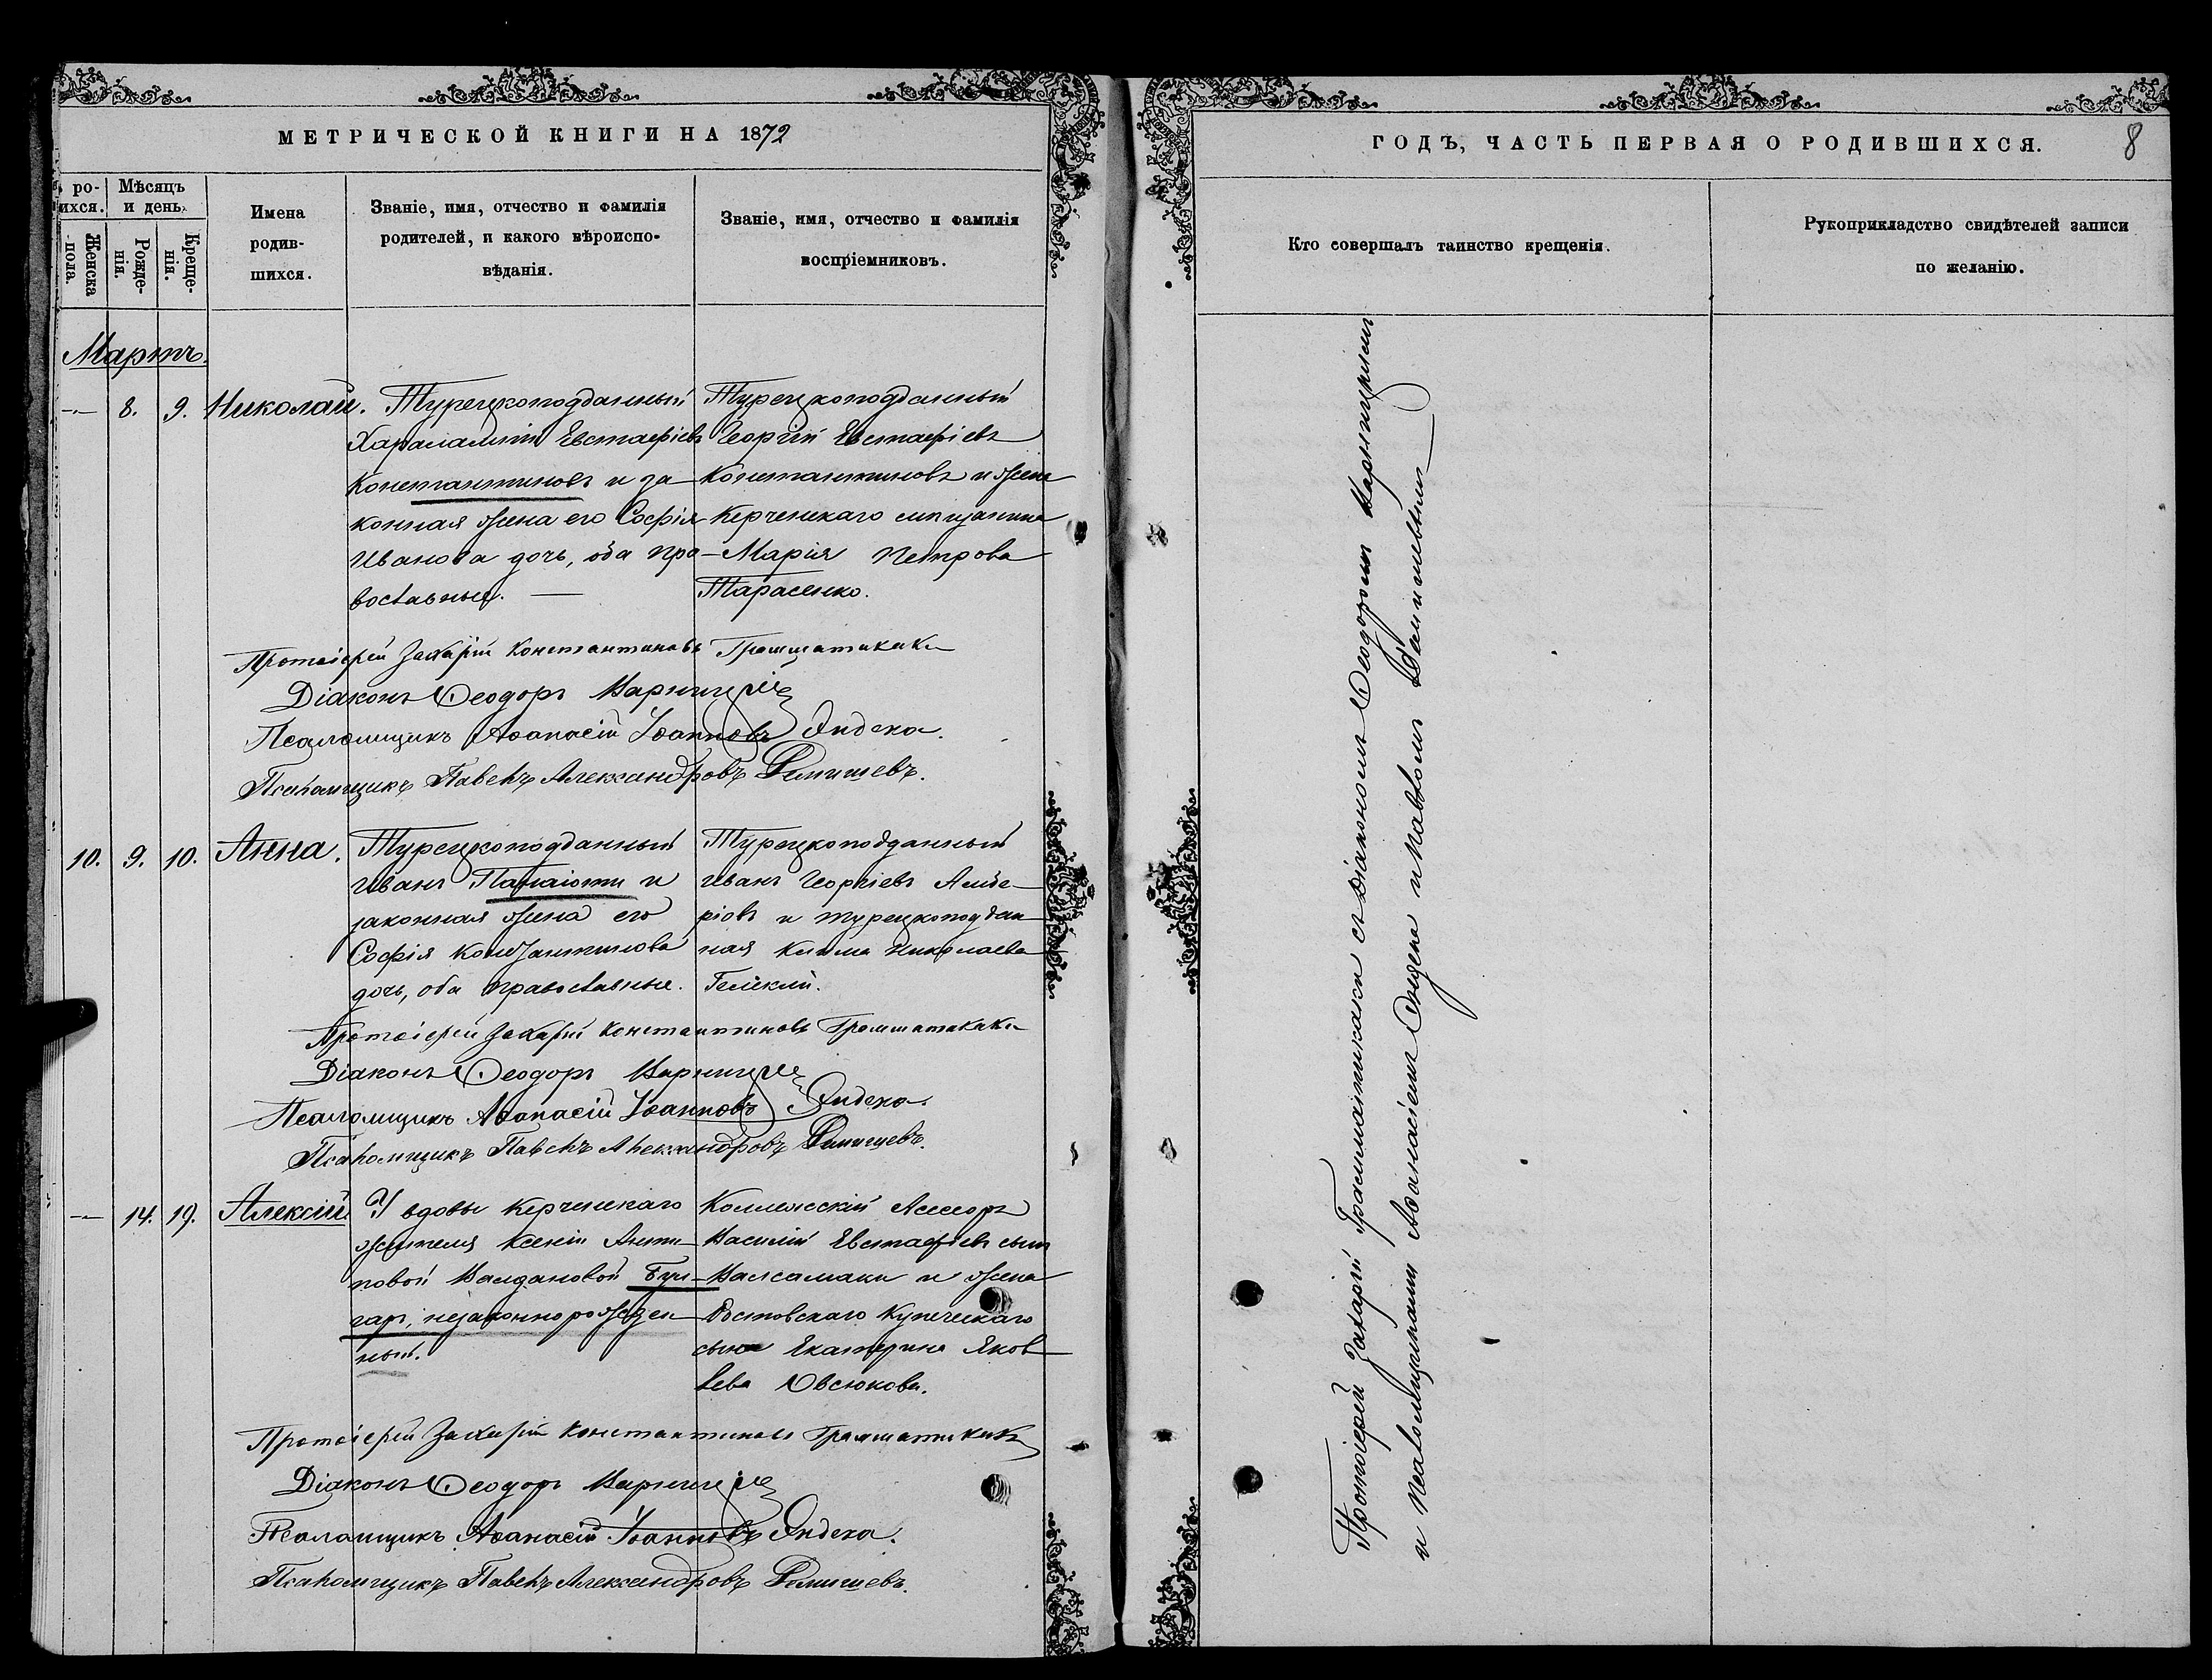 МЕТРИЧЕСКОЙ КНИГИ НА 1872
ро-
ихся.
Женска
пола.
Мѣсяцъ
и день.
Рожде-
нія.
Креще-
нія.
Имена
родив-
шихся.
Званіе, имя, отчество и фамилія
родителей, и какого вѣроиспо-
вѣданія.
Званіе, имя, отчество и фамилія
воспріемниковъ.
Мартъ.
— 8. 9. Николай.
Турецкоподданный
Харалампій Евстафіевъ
Константиновъ и за-
конная жена его Софія
Иванова дочь, оба пра-
вославные.
Турецкоподданный
Георгій Евстафіевъ
Константиновъ и жена
Керченскаго мѣщанина
Марія Петрова
Тарасенко.
Протоіерей Захарій Константиновъ Грамматикаки
Діаконъ Ѳеодоръ
Псаломщикъ Аѳанасій Іоанновъ Яндека.
Псаломщикъ Павелъ Александровъ
10. 9. 10. Анна.
Турецкоподданный
Иванъ Панаіоти и
законная жена его
Софія Константинова
дочь, оба православные.
Турецкоподданный
Иванъ Георгіевъ
ріовъ и турецкоподдан
ная Николаева
Протоіерей Захарій Константиновъ Грамматикаки
Діаконъ Ѳеодоръ
Псаломщикъ Аѳанасій Іоанновъ Яндека.
Псаломщикъ Павелъ Александровъ
— 14. 19. Алексій
У вдовы Керченскаго
жителя Ксеніи Анти-
повой Балдановой Бул-
гаръ, незаконнорожден
ный.
Коллежскій Ассесоръ
Василій Евстафіевъ сынъ
Валсамаки и жена
Ростовскаго Купеческаго
сына Екатерина Яков
лева Овсюкова.
Протоіерей Захарій Константиновъ Грамматикаки
Діаконъ Ѳеодоръ
Псаломщикъ Аѳанасій Іоанновъ Яндека.
Псаломщикъ Павелъ Александровъ
ГОДЪ, ЧАСТЬ ПЕРВАЯ О РОДИВШИХСЯ. 8
Кто совершалъ таинство крещенія.
Рукоприкладство свидѣтелей записи
по желанію.
Протоіерей Захарій Грамматикаки съ Діакономъ Ѳеодоромъ
и Псаломщиками Аѳанасіемъ и Павломъ